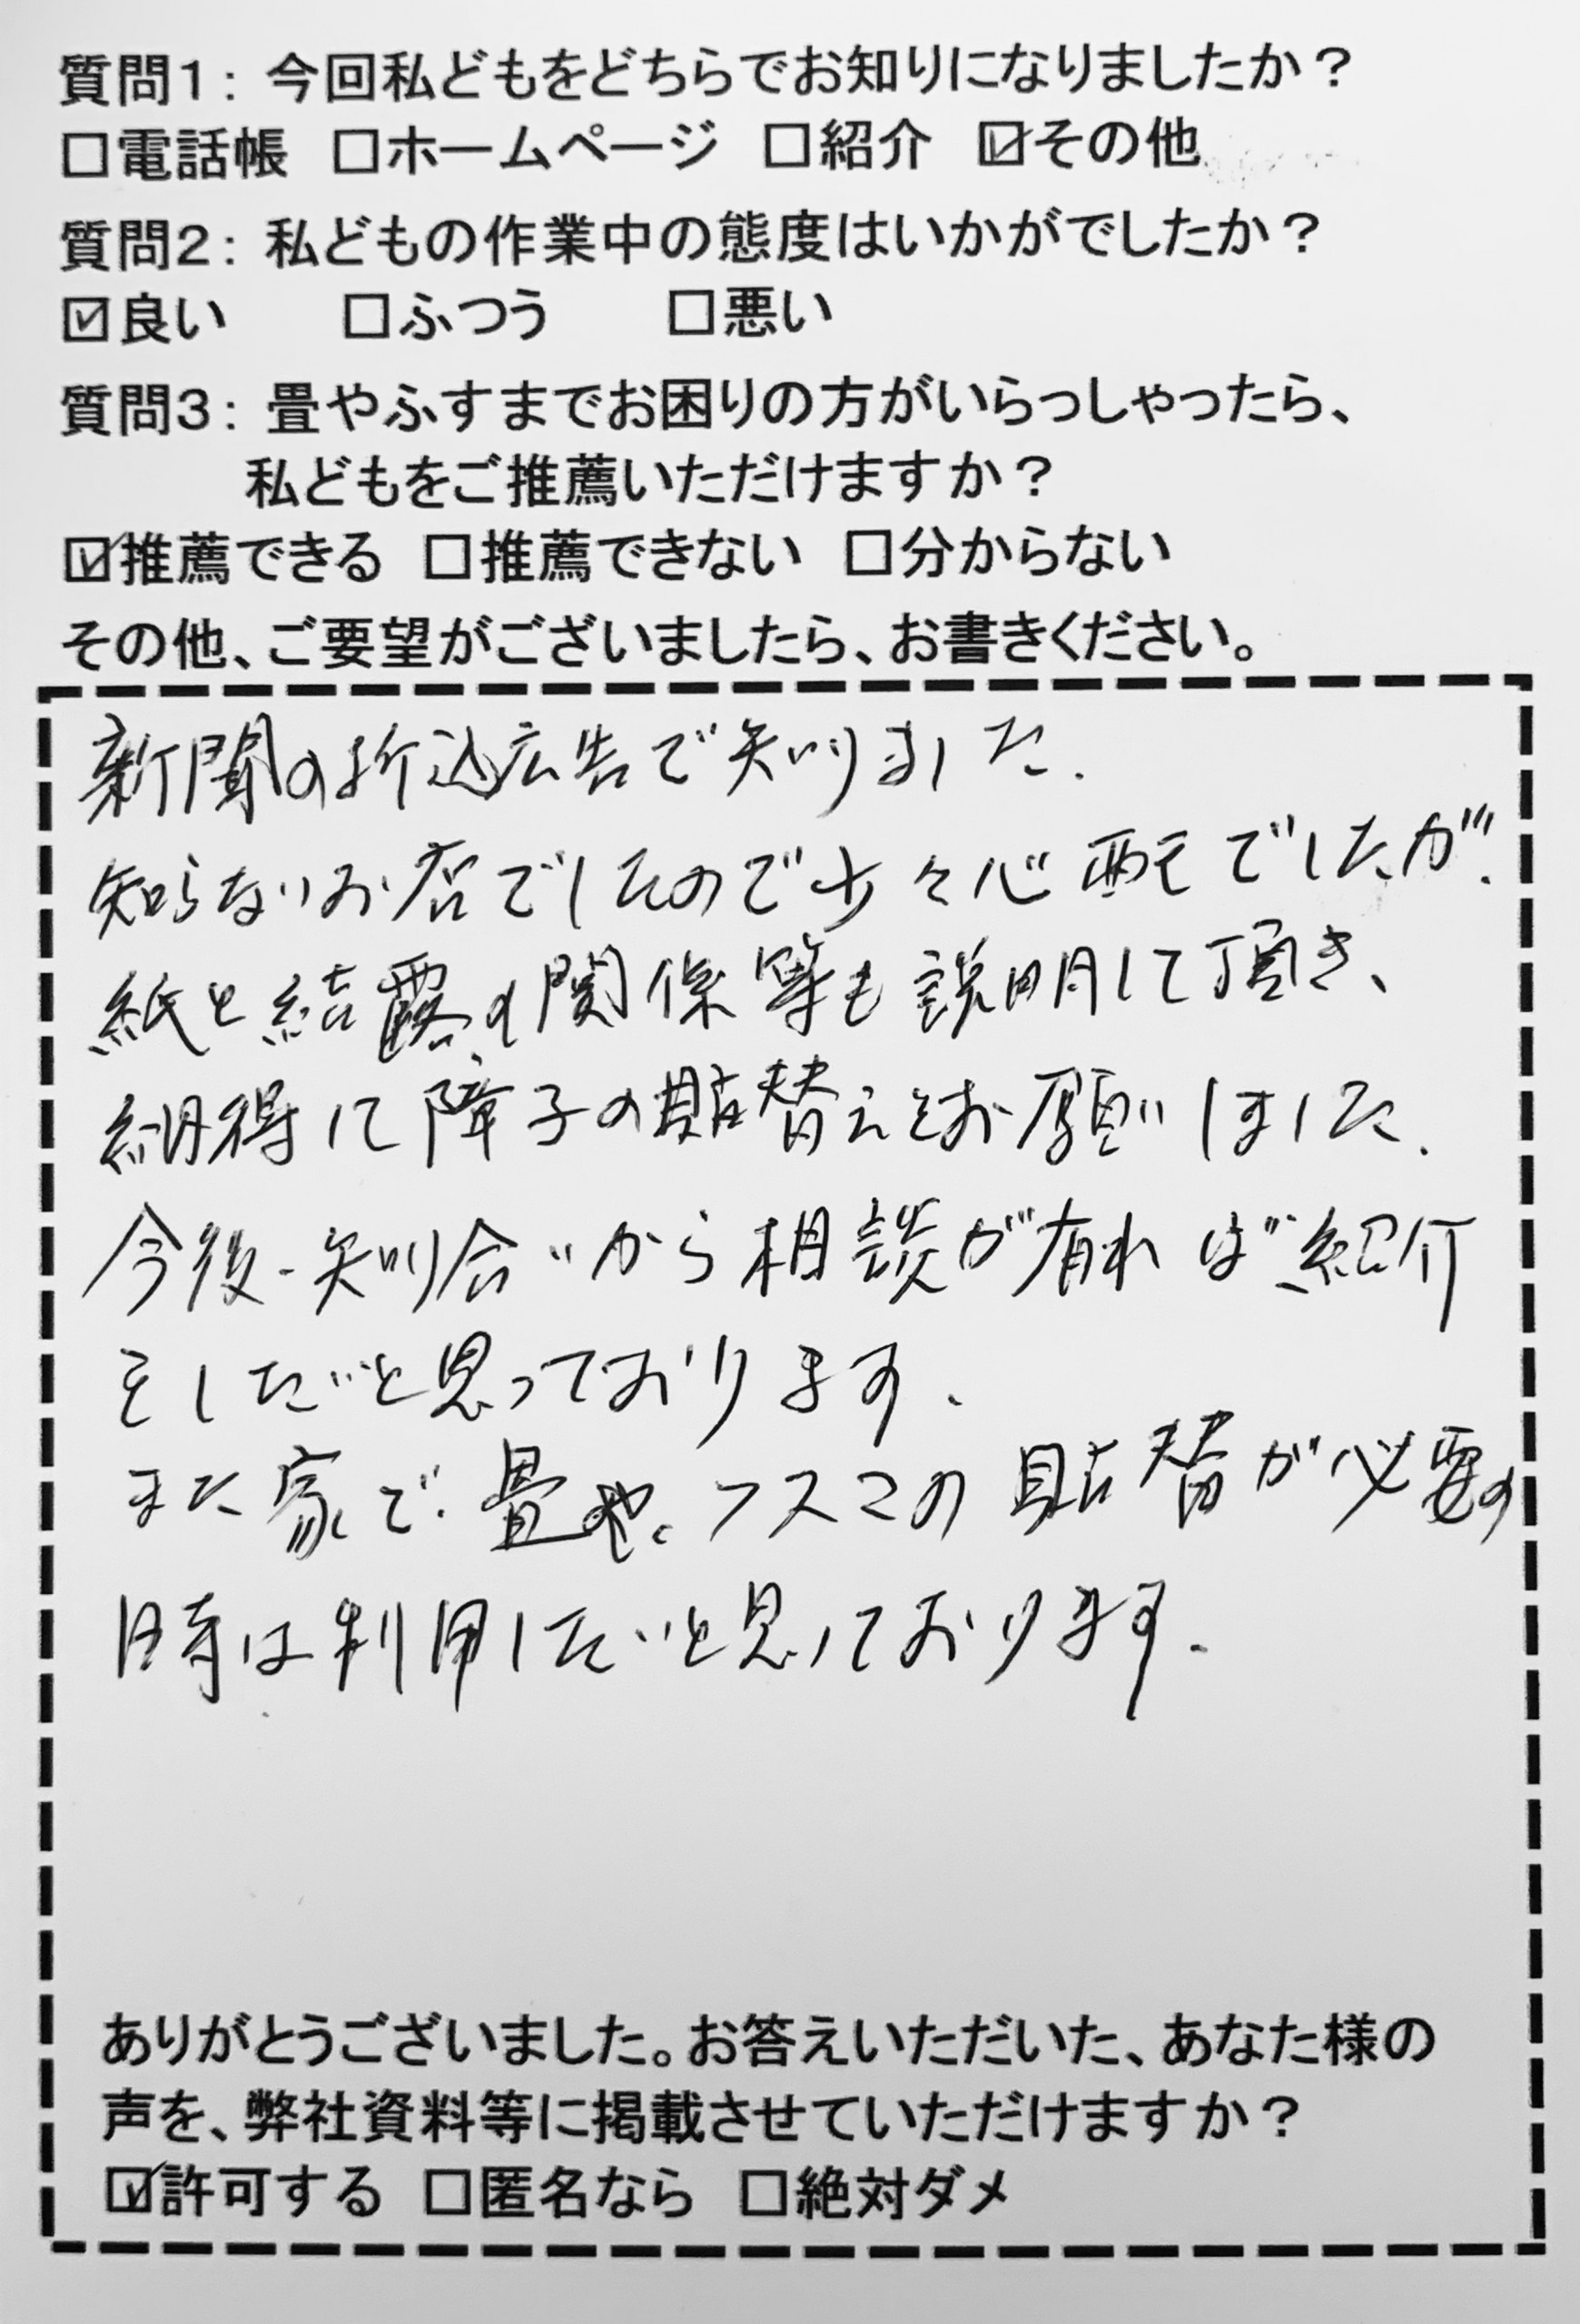 質問1：今回私どもをどちらでお知りになりましたか？
□電話帳 □ホームページ □紹介 ☑その他
質問2：私どもの作業中の態度はいかがでしたか？
☑良い □ふつう □悪い
質問3：畳やふすまでお困りの方がいらっしゃったら、
私どもをご推薦いただけますか？
☑推薦できる □推薦できない □分からない
その他、ご要望がございましたら、お書きください。
新聞の折込広告で知りました.
知らないお店でしたので少々心配でしたが.
紙と結露の関係等も説明して頂き、
納得して障子の貼替えをお願いしました.
今後、知り合いから相談が有れば紹介
をしたいと思っております.
また家で、畳や、フスマの貼替が必要の
時は利用したいと思っております.
ありがとうございました。お答えいただいた、あなた様の
声を、弊社資料等に掲載させていただけますか？
☑許可する □匿名なら □絶対ダメ